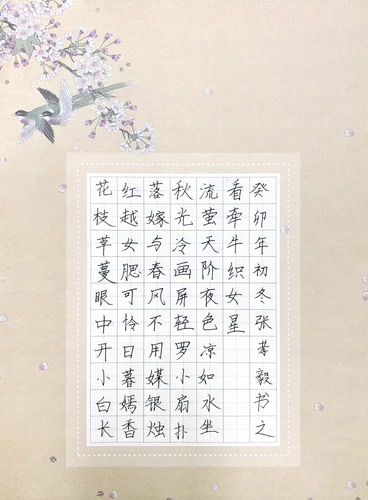 花枝草蔓眼中开小白长
红越女腮可怜日暮嫣香
落嫁与春风不用媒银烛
秋光冷画屏轻罗小扇扑
流萤天阶夜色凉如水坐
看牵牛织女星
癸卯年初冬张孝毅书之